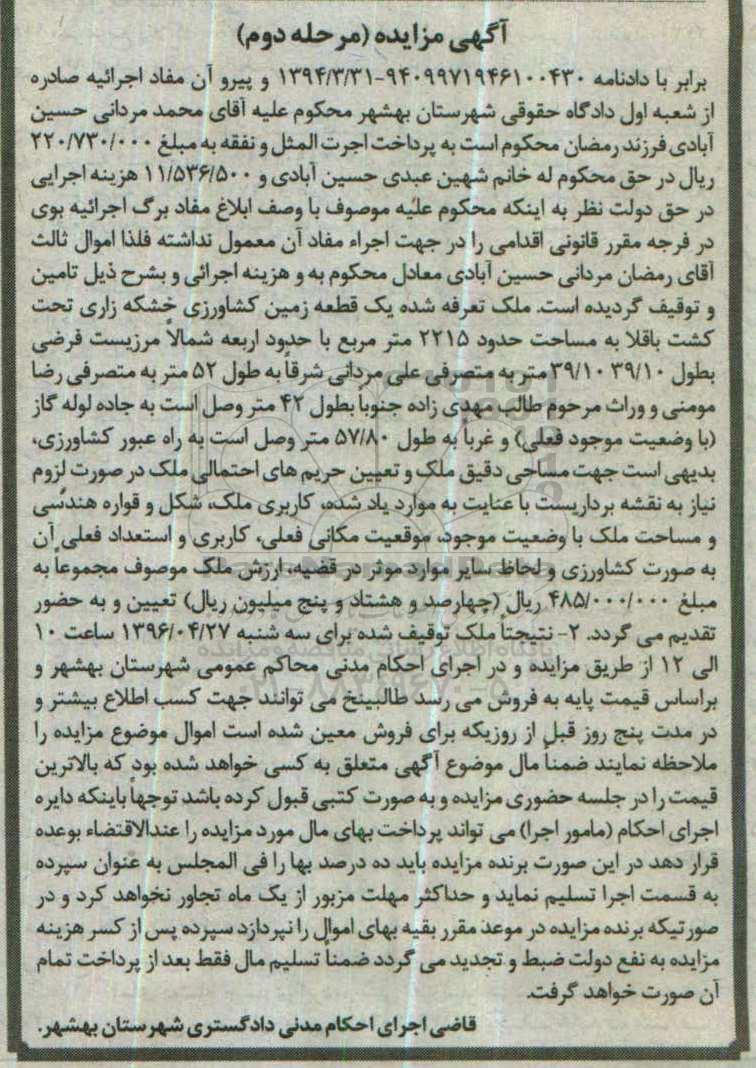 آگهی مزایده (مرحله دوم)
برابر با دادنامه ۹۴۰۹۹۷۱۹۴۶۱۰۰۴۳۰-۱۳۹۴/۳/۳۱ و پیرو آن مفاد اجرائیه صادره
از شعبه اول دادگاه حقوقی شهرستان بهشهر محکوم علیه آقای محمد مردانی حسین
آبادی فرزند رمضان محکوم است به پرداخت اجرت المثل و نفقه به مبلغ ۲۲۰/۷۳۰/۰۰۰
ریال در حق محکوم له خانم شهین عبدی حسین آبادی و ۱۱/۵۳۶/۵۰۰ هزینه اجرایی
در حق دولت نظر به اینکه محکوم علیه موصوف با وصف ابلاغ مفاد برگ اجرائیه بوی
در فرجه مقرر قانونی اقدامی را در جهت اجراء مفاد آن معمول نداشته فلذا اموال ثالث
آقای رمضان مردانی حسین آبادی معادل محکوم به و هزینه اجرائی و بشرح ذیل تامین
و توقیف گردیده است. ملک تعرفه شده یک قطعه زمین کشاورزی خشکه زاری تحت
کشت باقلا به مساحت حدود ۲۲۱۵ متر مربع با حدود اربعه شمالاً مرزیست فرضی
بطول ۳۹/۱۰ ۳۹/۱۰ متر به متصرفی علی مردانی شرقاً به طول ۵۲ متر به متصرفی رضا
مومنی و وراث مرحوم طالب مهدی زاده جنوباً بطول ۴۲ متر وصل است به جاده لوله گاز
(با وضعیت موجود فعلی) و غرباً به طول ۵۷/۸۰ متر وصل است به راه عبور کشاورزی،
بدیهی است جهت مساحی دقیق ملک و تعیین حریم های احتمالی ملک در صورت لزوم
نیاز به نقشه برداریست با عنایت به موارد یاد شده، کاربری ملک، شکل و قواره هندسی
و مساحت ملک با وضعیت موجود، موقعیت مکانی فعلی، کاربری و استعداد فعلی آن
به صورت کشاورزی و لحاظ سایر موارد موثر در قضیه، ارزش ملک موصوف مجموعاً به
مبلغ ۴۸۵/۰۰۰/۰۰۰ ریال (چهارصد و هشتاد و پنج میلیون ریال) تعیین و به حضور
تقدیم می گردد. ۲- نتیجتاً ملک توقیف شده برای سه شنبه ۱۳۹۶/۰۴/۲۷ ساعت ۱۰
الی ۱۲ از طریق مزایده و در اجرای احکام مدنی محاکم عمومی شهرستان بهشهر و
براساس قیمت پایه به فروش می رسد طالبینخ می توانند جهت کسب اطلاع بیشتر و
در مدت پنج روز قبل از روزیکه برای فروش معین شده است اموال موضوع مزایده را
ملاحظه نمایند ضمناً مال موضوع آگهی متعلق به کسی خواهد شده بود که بالاترین
قیمت را در جلسه حضوری مزایده و به صورت کتبی قبول کرده باشد توجهاً باینکه دایره
اجرای احکام (مامور اجرا) می تواند پرداخت بهای مال مورد مزایده را عندالاقتضاء بوعده
قرار دهد در این صورت برنده مزایده باید ده درصد بها را فی المجلس به عنوان سپرده
به قسمت اجرا تسلیم نماید و حداکثر مهلت مزبور از یک ماه تجاور نخواهد کرد و در
صورتیکه برنده مزایده در موعد مقرر بقیه بهای اموال را نپردازد سپرده پس از کسر هزینه
مزایده به نفع دولت ضبط و تجدید می گردد ضمناً تسلیم مال فقط بعد از پرداخت تمام
آن صورت خواهد گرفت.
قاضی اجرای احکام مدنی دادگستری شهرستان بهشهر.